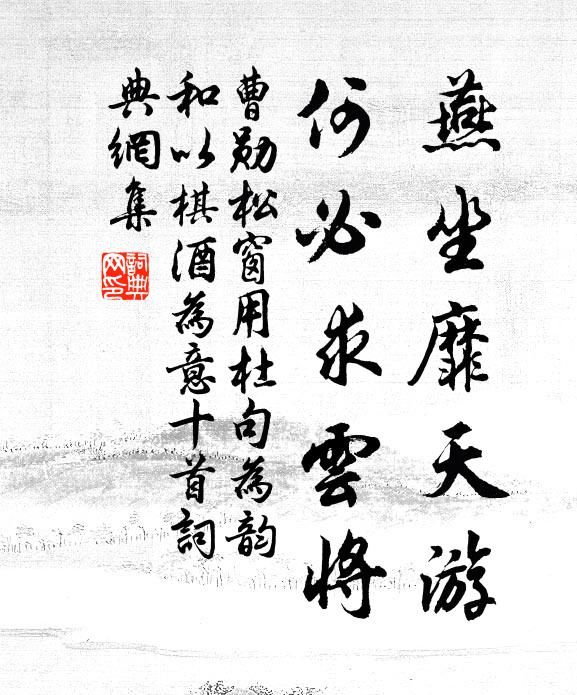 燕坐靡天游
何必求雲将
曹勛松窗用杜句為韵
和以棋酒為意十首詞
典網集
詞典
网印